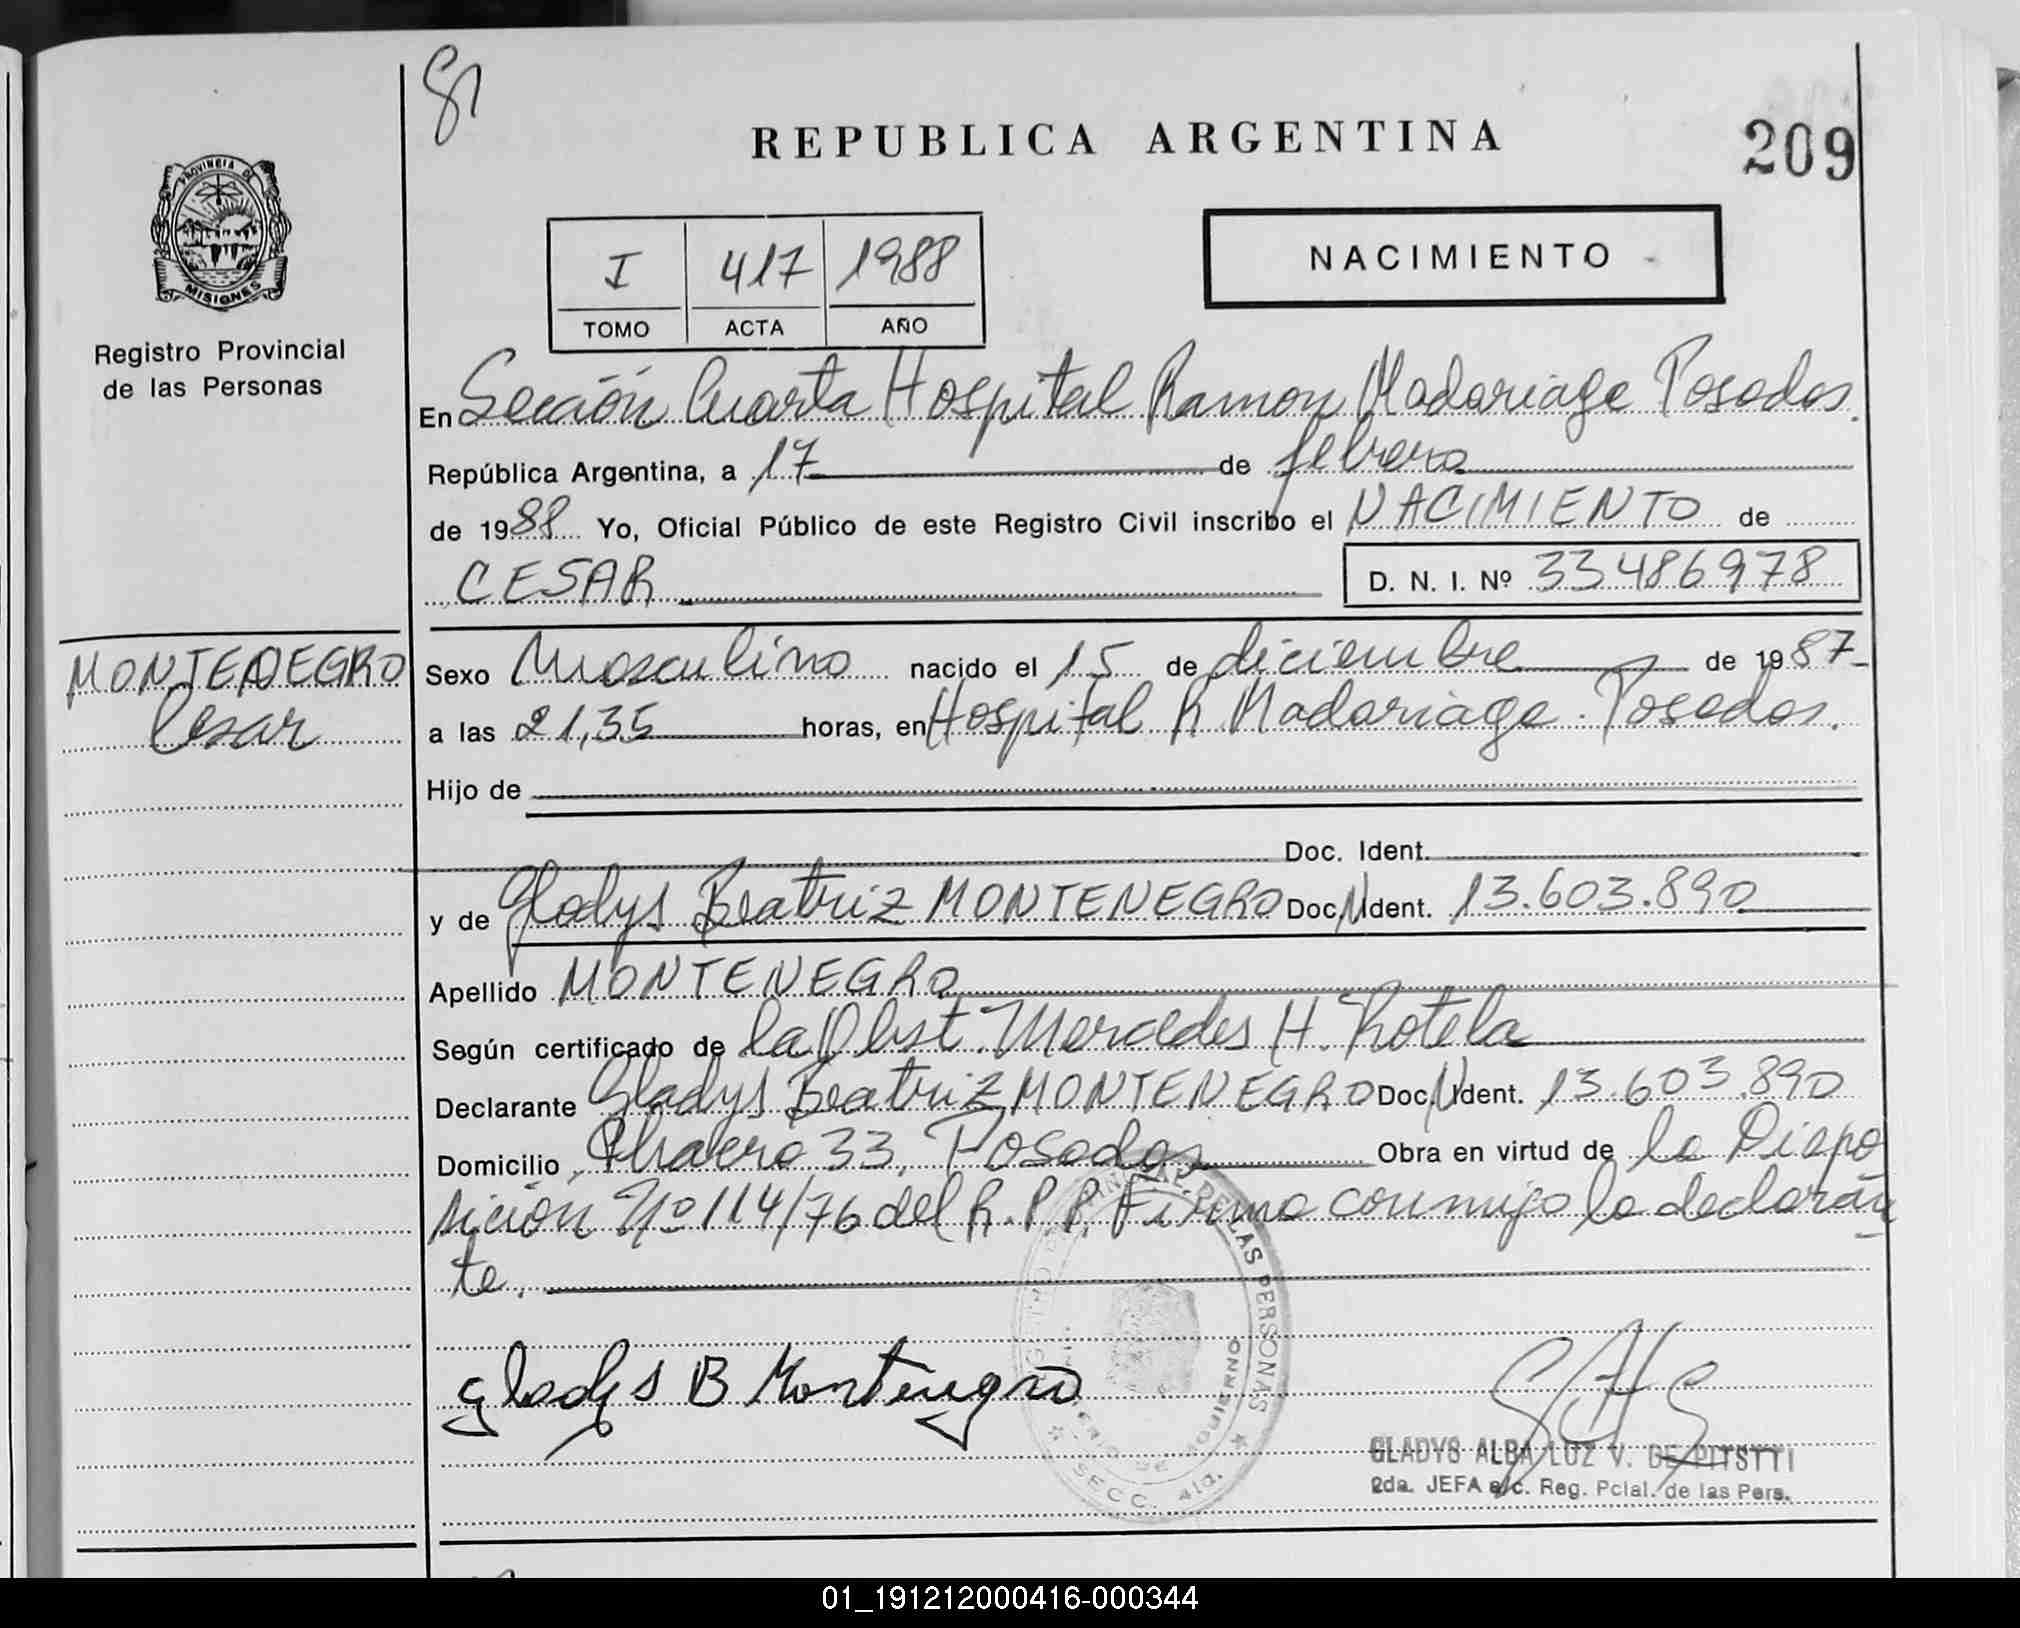 209
REPUBLICA ARGENTINA
NACIMIENTO
I 417 1988
TOMO ACTA AÑO
PROVINCIA DE
MISIONES
Registro Provincial
de las Personas
En Sección Cuarta Hospital Ramon Madariaga Posadas.
República Argentina, a 17 de febrero
de 1988 Yo, Oficial Público de este Registro Civil inscribo el NACIMIENTO de
CESAR D. N. I. Nº 33486978
MONTENEGRO
Cesar
Sexo Masculino nacido el 15 de diciembre de 1987
a las 21,35 horas, en Hospital R Madariaga. Posadas.
Hijo de
Doc. Ident.
y de Gladys Beatriz MONTENEGRO Doc. N Ident. 13.603.890
Apellido MONTENEGRO
Según certificado de la Obst. Mercedes H. Rotela
Declarante Gladys Beatriz MONTENEGRO Doc. N Ident. 13.603.890
Domicilio 33, Posadas Obra en virtud de la Dispo
sición Nº 114/76 del R.P.P. Firma conmigo la declaran
te.
Gladys B Montenegro
DE LAS PERSONAS
GOBIERNO
SECC. 4ta.
GLADYS ALBA LUZ V. DE PITSTTI
2da. JEFA a/c. Reg. Pcial. de las Pers.
01_191212000416-000344